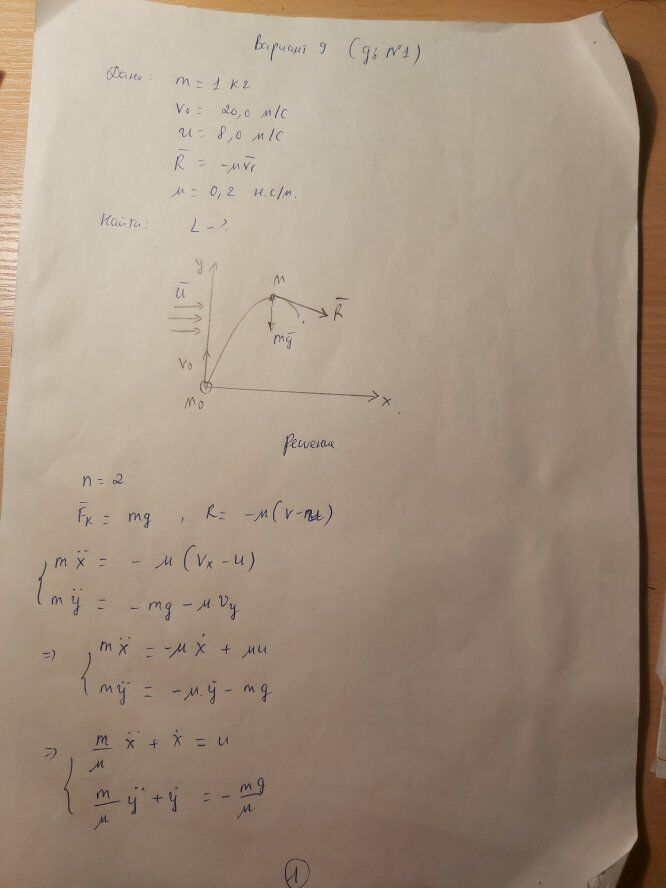 Вариант 9 (дз №1)
Дано: m = 1 кг
v₀ = 20,0 м/с
u = 8,0 м/с
R̄ = -μv̄r
μ = 0,2 н.с/м.
Найти: L - ?
y
ū
M
R̄
mḡ
v₀
M₀
x
Решение
n = 2
F̄к = mg , R = -μ(v-u)
{ mẍ = - μ(Vx - u)
mÿ = - mg - μ.Vy
=> { mẍ = -μẋ + μu
mÿ = -μ.ẏ - mg
=> { m/μ ẍ + ẋ = u
m/μ ÿ + ẏ = - mg/μ
1